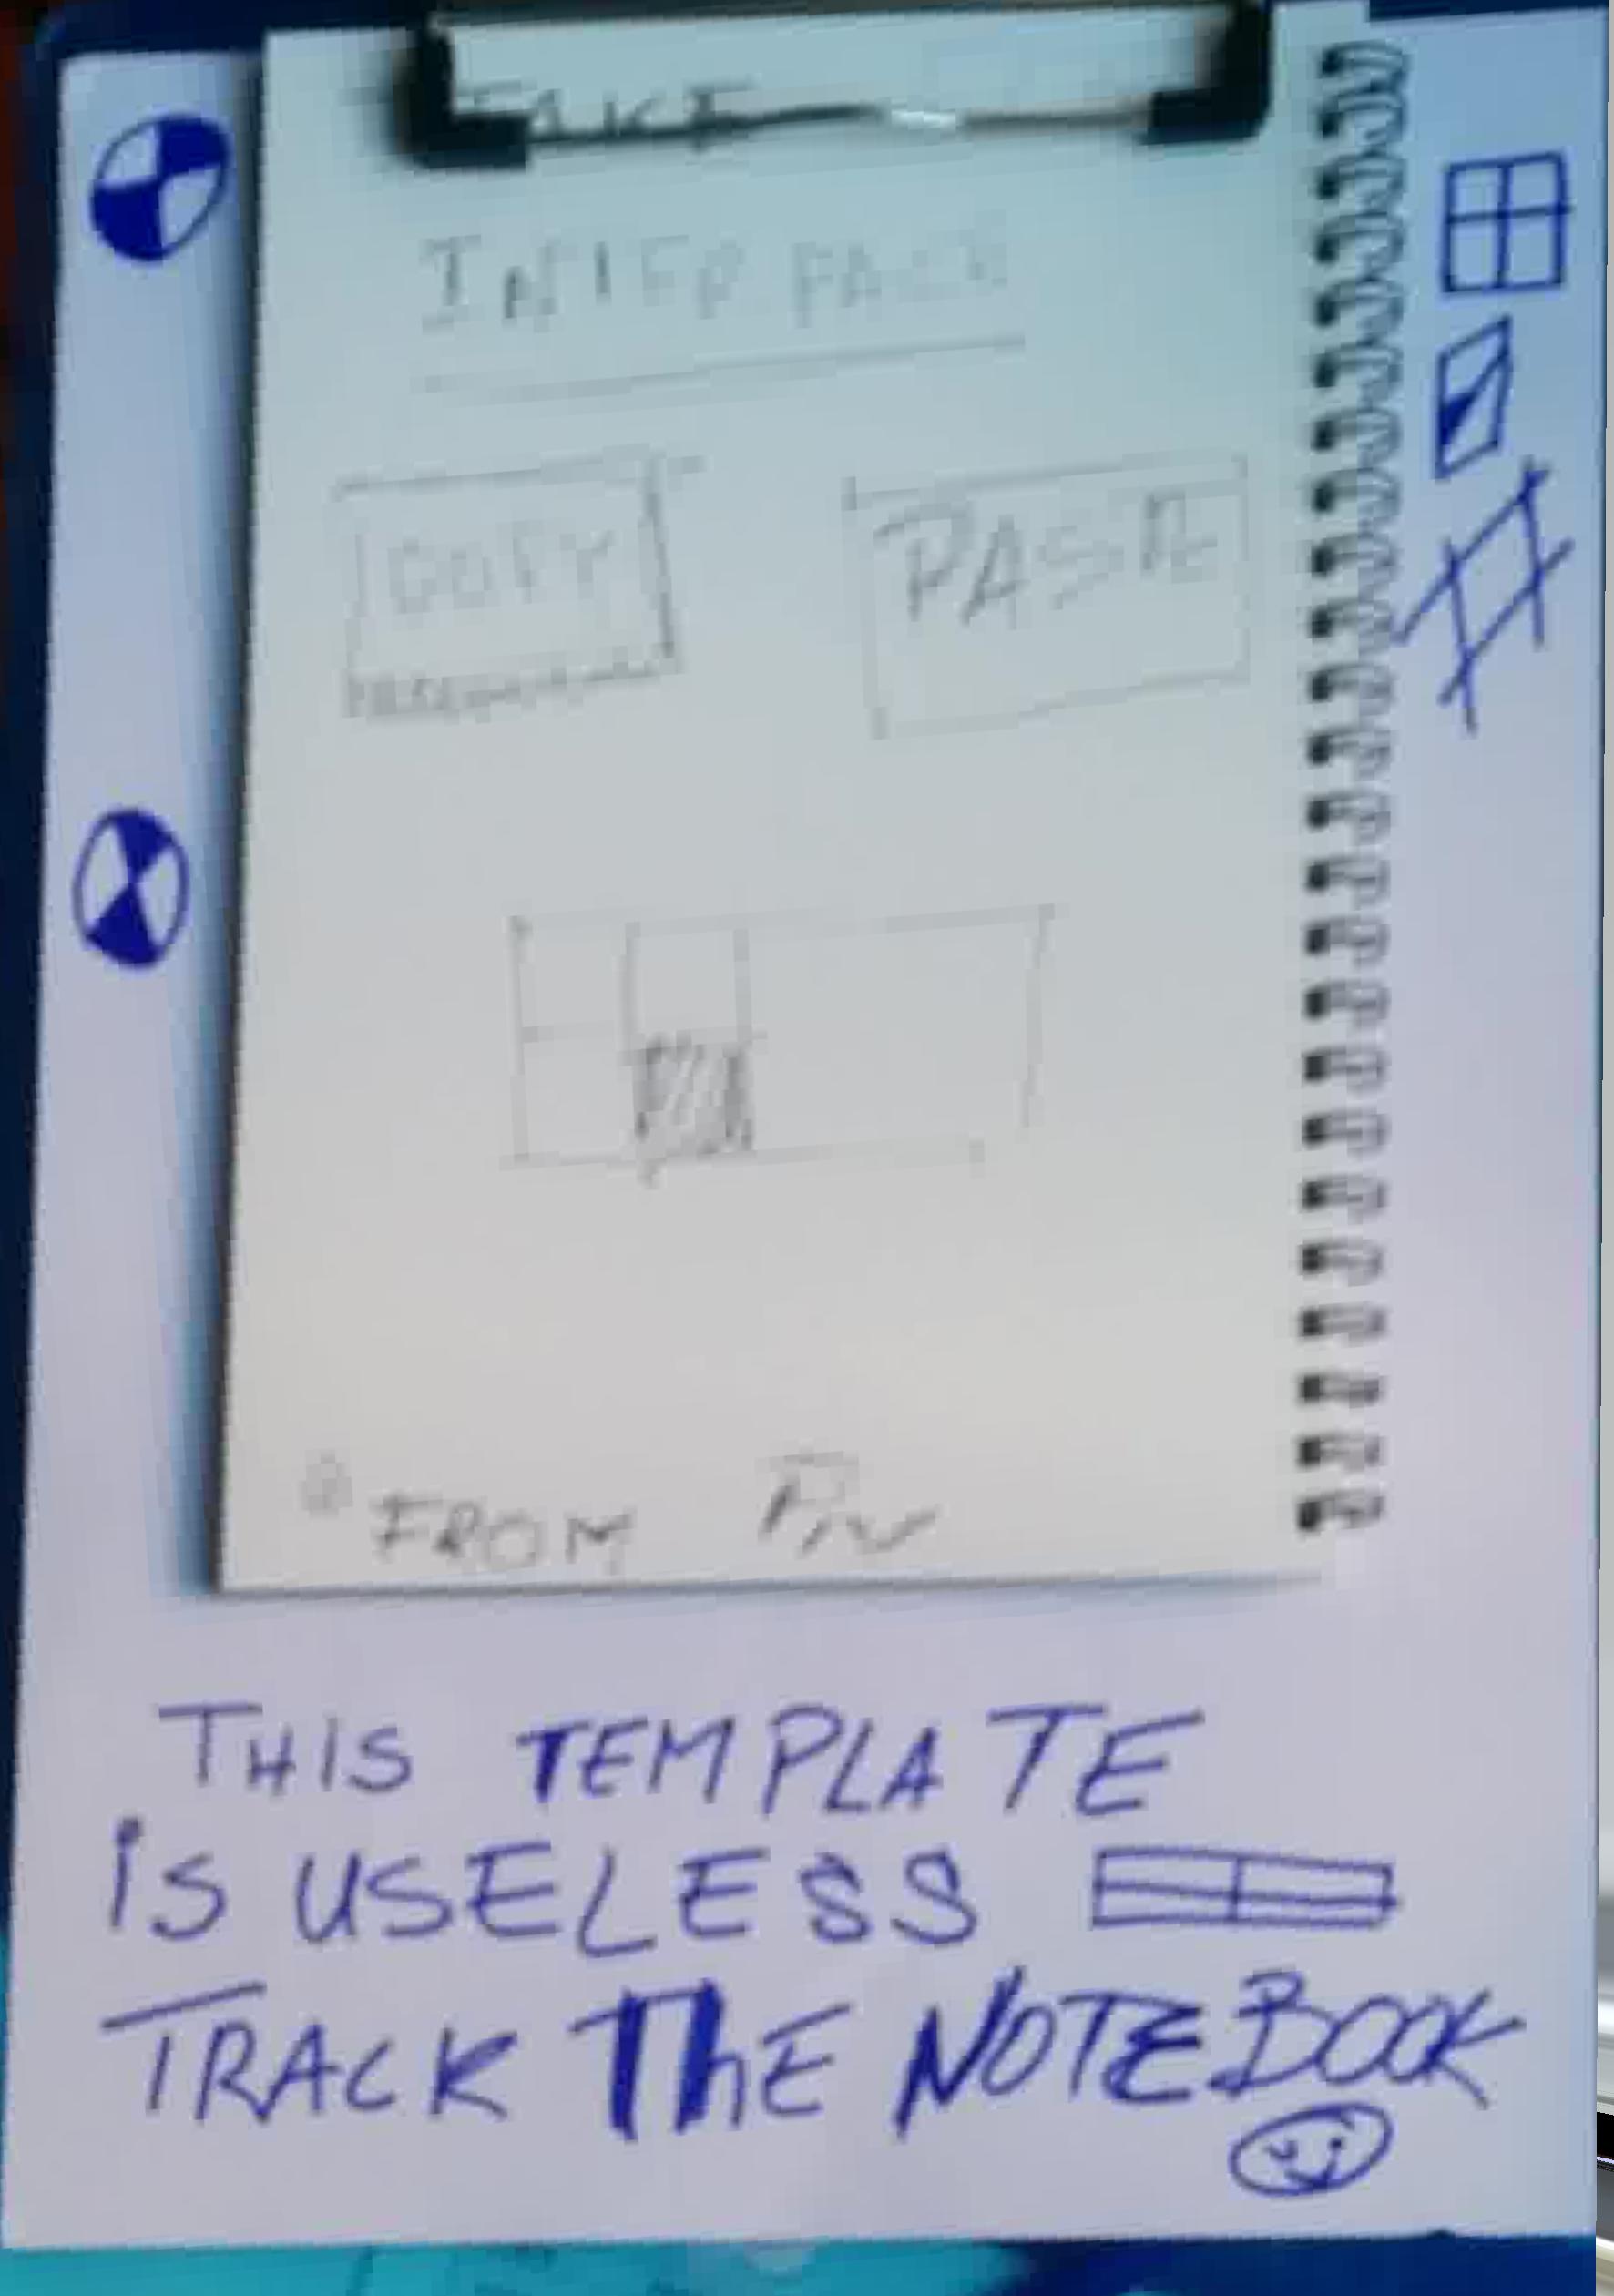 FAKE
INTERFACE
COPY
PASTE
FROM
THIS TEMPLATE
is USELESS
TRACK ThE NOTEBOOK